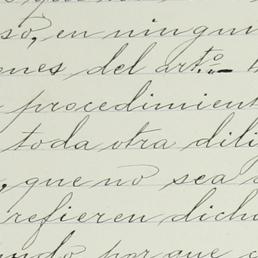 so, en ningun
enes del art.º-
procedimient
toda otra dili
, que no sea
refieren dicho
ando porque